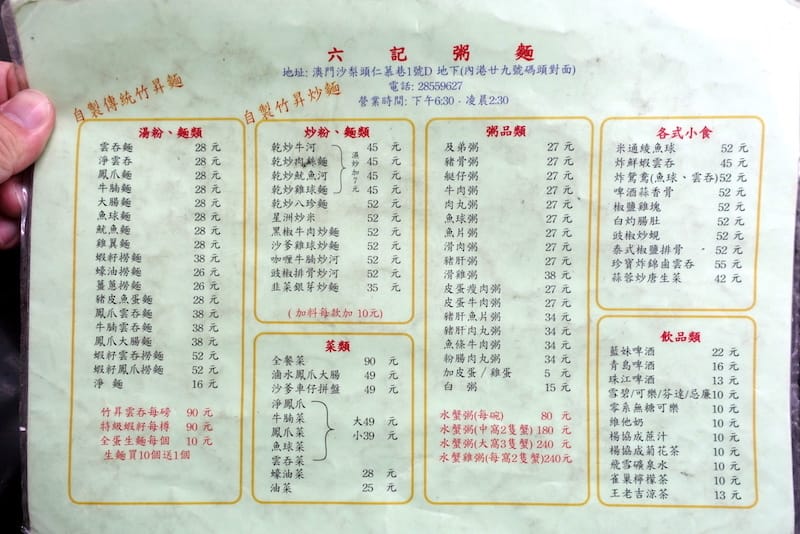 六記粥麵
地址: 澳門沙梨頭仁慕巷1號D 地下(內港廿九號碼頭對面)
電話: 28559627
營業時間: 下午6:30 - 凌晨2:30
自製傳統竹昇麵
自製竹昇炒麵
湯粉、麵類
雲吞麵 28 元
淨雲吞 28 元
鳳爪麵 28 元
牛腩麵 28 元
大腸麵 28 元
魚球麵 28 元
魷魚麵 28 元
雞翼麵 28 元
蝦籽撈麵 38 元
蠔油撈麵 26 元
薑蔥撈麵 26 元
豬皮魚蛋麵 28 元
鳳爪雲吞麵 38 元
牛腩雲吞麵 38 元
鳳爪大腸麵 38 元
蝦籽雲吞撈麵 52 元
蝦籽鳳爪撈麵 52 元
淨 麵 16 元
竹昇雲吞每磅 90 元
特級蝦籽每樽 90 元
全蛋生麵每個 10 元
生麵買10個送1個
炒粉、麵類
乾炒牛河 45 元
乾炒肉絲麵 45 元
乾炒魷魚河 45 元
乾炒雞球麵 45 元
濕炒加7元
乾炒八珍麵 52 元
星洲炒米 52 元
黑椒牛肉炒麵 52 元
沙爹雞球炒麵 52 元
咖喱牛腩炒河 52 元
豉椒排骨炒河 52 元
韮菜銀芽炒麵 35 元
( 加料每款加 10元)
菜類
全餐菜 90 元
滷水鳳爪大腸 49 元
沙爹車仔拼盤 49 元
淨鳳爪
牛腩菜
鳳爪菜
魚球菜
雲吞菜
大49 元
小39 元
蠔油菜 28 元
油菜 25 元
粥品類
及弟粥 27 元
豬骨粥 27 元
艇仔粥 27 元
牛肉粥 27 元
肉丸粥 27 元
魚球粥 27 元
魚片粥 27 元
滑肉粥 27 元
豬肝粥 27 元
滑雞粥 38 元
皮蛋瘦肉粥 27 元
皮蛋牛肉粥 27 元
豬肝魚片粥 34 元
豬肝肉丸粥 34 元
魚條牛肉粥 34 元
粉腸肉丸粥 34 元
加皮蛋／雞蛋 5 元
白 粥 15 元
水蟹粥(每碗) 80 元
水蟹粥(中窩2隻蟹) 180 元
水蟹粥(大窩3隻蟹) 240 元
水蟹雞粥(每窩2隻蟹)240元
各式小食
米通綾魚球 52 元
炸鮮蝦雲吞 45 元
炸鴛鴦(魚球、雲吞)52元
啤酒蒜香骨 52 元
椒鹽雞塊 52 元
白灼腸肚 52 元
豉椒炒蜆 52 元
泰式椒鹽排骨 52 元
珍寶炸錦鹵雲吞 55 元
蒜蓉炒唐生菜 42 元
飲品類
藍妹啤酒 22 元
青島啤酒 16 元
珠江啤酒 13 元
雪碧/可樂/芬達/忌廉10元
零系無糖可樂 10 元
維他奶 10 元
楊協成蔗汁 10 元
楊協成菊花茶 10 元
飛雪礦泉水 10 元
雀巢檸檬茶 10 元
王老吉涼茶 13 元